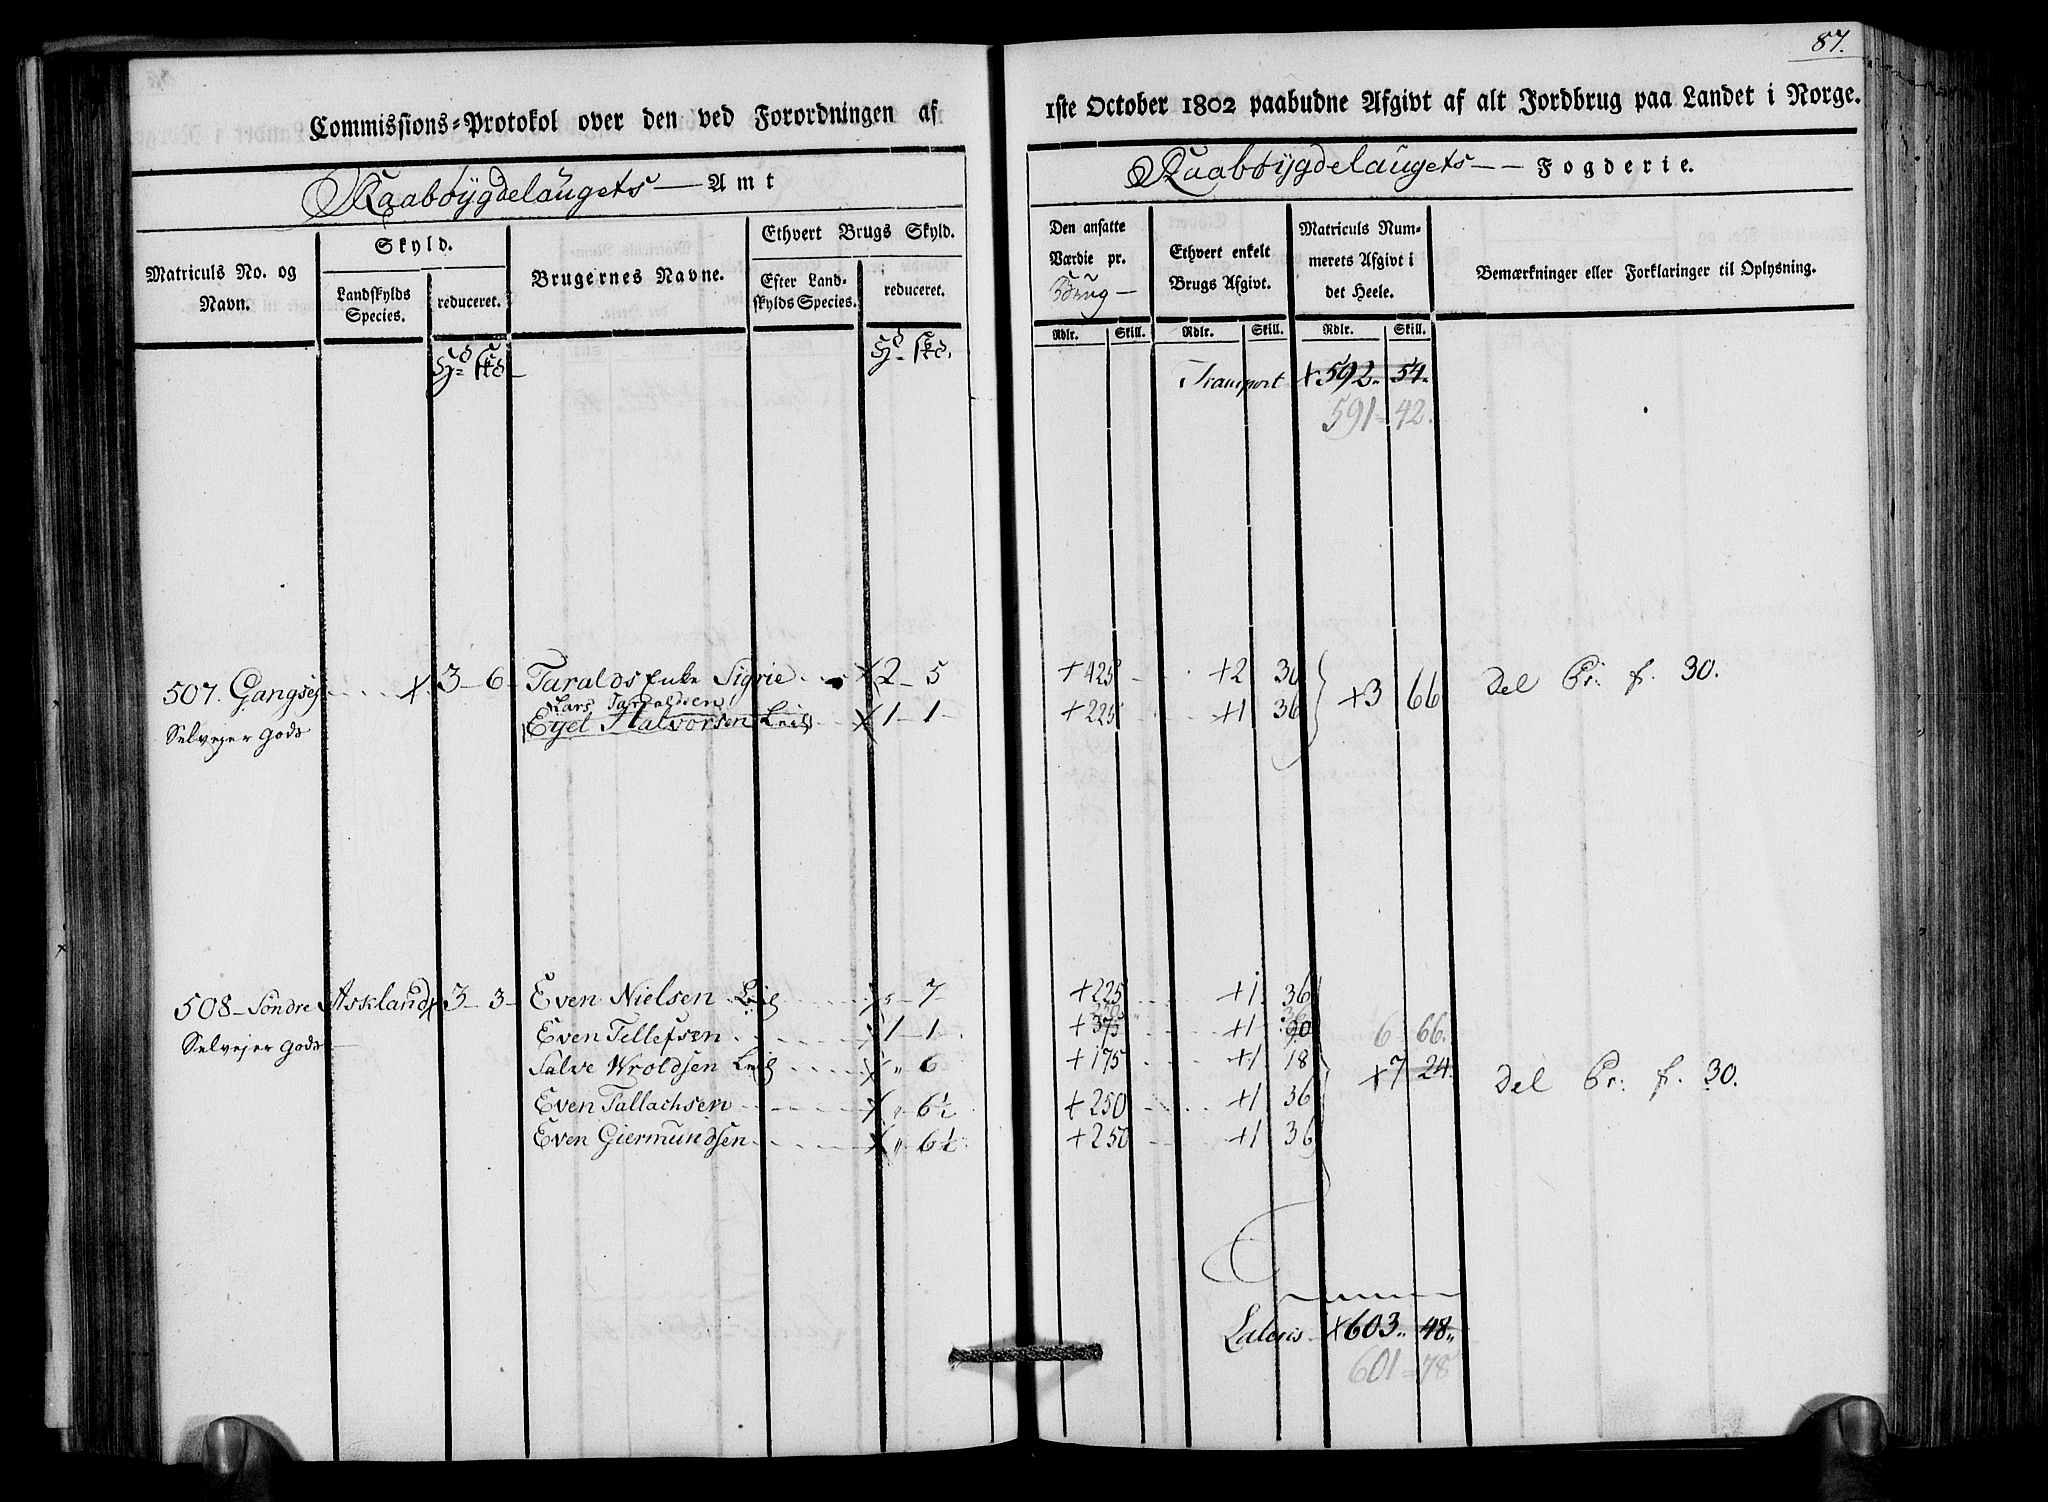 87.
Commissions-Protokol over den ved Forordningen af 1ste October 1802 paabudne Afgivt af alt Jordbrug paa Landet i Norge.
Raabøygdelaugets — Amt
Raabøygdelaugets — Fogderie.
Matriculs No. og Navn.
Skyld.
Landskylds Species.
reduceret.
Brugernes Navne.
Ethvert Brugs Skyld.
Efter Landskylds Species.
reduceret.
Den ansatte Værdie pr. Brug —
Ethvert enkelt Brugs Afgivt.
Matriculs Nummerets Afgivt i det Heele.
Bemærkninger eller Forklaringer til Oplysning.
Rdlr. Skill. Rdlr. Skill. Rdlr. Skill.
Hd Skd Hd Skd.
Transport x 592. 54.
591 = 42.
507. Gangsej x 3 - 6 Taralds Enke Sigrie x 2 - 5 +425 +2 30 +3 66 Del Pr. f. 30.
Lars Taraldsen
Selvejer Gods Eyel Halvorsen Leil x 1 - 1 - +225 +1 36
508 - Søndre Askland x 3 - 3 - Even Nielsen Leil x „ - 7 - +225 +1. 36
250 36
Selvejer Gods Even Tellefsen x 1 - 1 +375 +1 90 6 66.
Salve Wroldsen Leil x „ 6 +175 +1 18 +7 24. Del Pr: f. 30.
Even Tallachsen x „ 6½ +250 +1 36
Even Giermundsen x „ 6½ +250 +1 36
Lateris x 603„ 48„
601 = 78